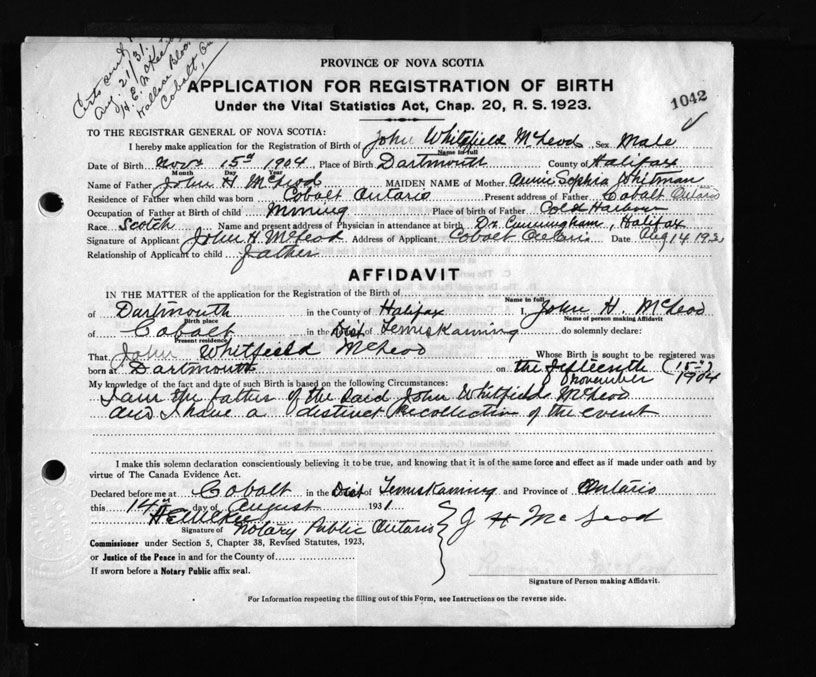 Aug. 21/31.
Cobalt, Ont
PROVINCE OF NOVA SCOTIA
APPLICATION FOR REGISTRATION OF BIRTH
Under the Vital Statistics Act, Chap. 20, R. S. 1923.
1042
TO THE REGISTRAR GENERAL OF NOVA SCOTIA:
I hereby make application for the Registration of Birth of John Whitfield McLeod, Sex Male
Name in full
Date of Birth Nov. 15th 1904, Place of Birth Dartmouth County of Halifax
Month Day Year
Name of Father John H McLeod MAIDEN NAME of Mother Annie Sophia Whitman
Residence of Father when child was born Cobalt Ontario Present address of Father Cobalt Ontario
Occupation of Father at Birth of child Mining Place of birth of Father Cole Harbour
Race Scotch Name and present address of Physician in attendance at birth Dr Cunningham, Halifax
Signature of Applicant John H. McLeod Address of Applicant Cobalt Ontario Date Aug 14 193
Relationship of Applicant to child father
AFFIDAVIT
IN THE MATTER of the application for the Registration of the Birth of
Name in full
of Dartmouth in the County of Halifax I, John H. McLeod
Birth place Name of person making Affidavit
of Cobalt in the Dist of Temiskaming do solemnly declare:
Present residence
That John Whitfield McLeod Whose Birth is sought to be registered was
born at Dartmouth on the fifteenth (15th)
November 1904
My knowledge of the fact and date of such Birth is based on the following Circumstances:
I am the father of the said John Whitfield McLeod
and I have a distinct recollection of the event
I make this solemn declaration conscientiously believing it to be true, and knowing that it is of the same force and effect as if made under oath and by
virtue of The Canada Evidence Act.
Declared before me at Cobalt in the Dist of Temiskaming and Province of Ontario
this 14th day of August 1931.
Signature of Notary Public Ontario J H McLeod
Commissioner under Section 5, Chapter 38, Revised Statutes, 1923,
or Justice of the Peace in and for the County of
If sworn before a Notary Public affix seal.
Signature of Person making Affidavit.
For Information respecting the filling out of this Form, see Instructions on the reverse side.